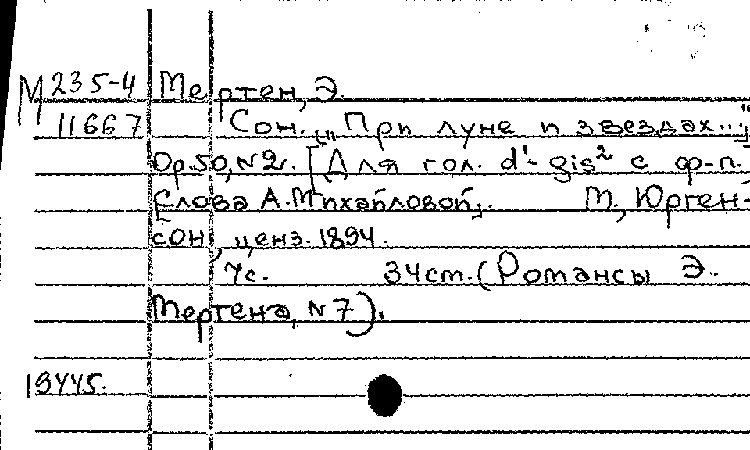 М 235-4 Мертен, Э.
11667 Сон. „При луне и звездах..."
Op.50, N2. [Для гол. d'-gis² с ф-п.
Слова А. Михайловой]. М., Юрген-
сон, ценз. 1894.
7с. 34см. (Романсы Э.
Мертена, N 7).
19445.